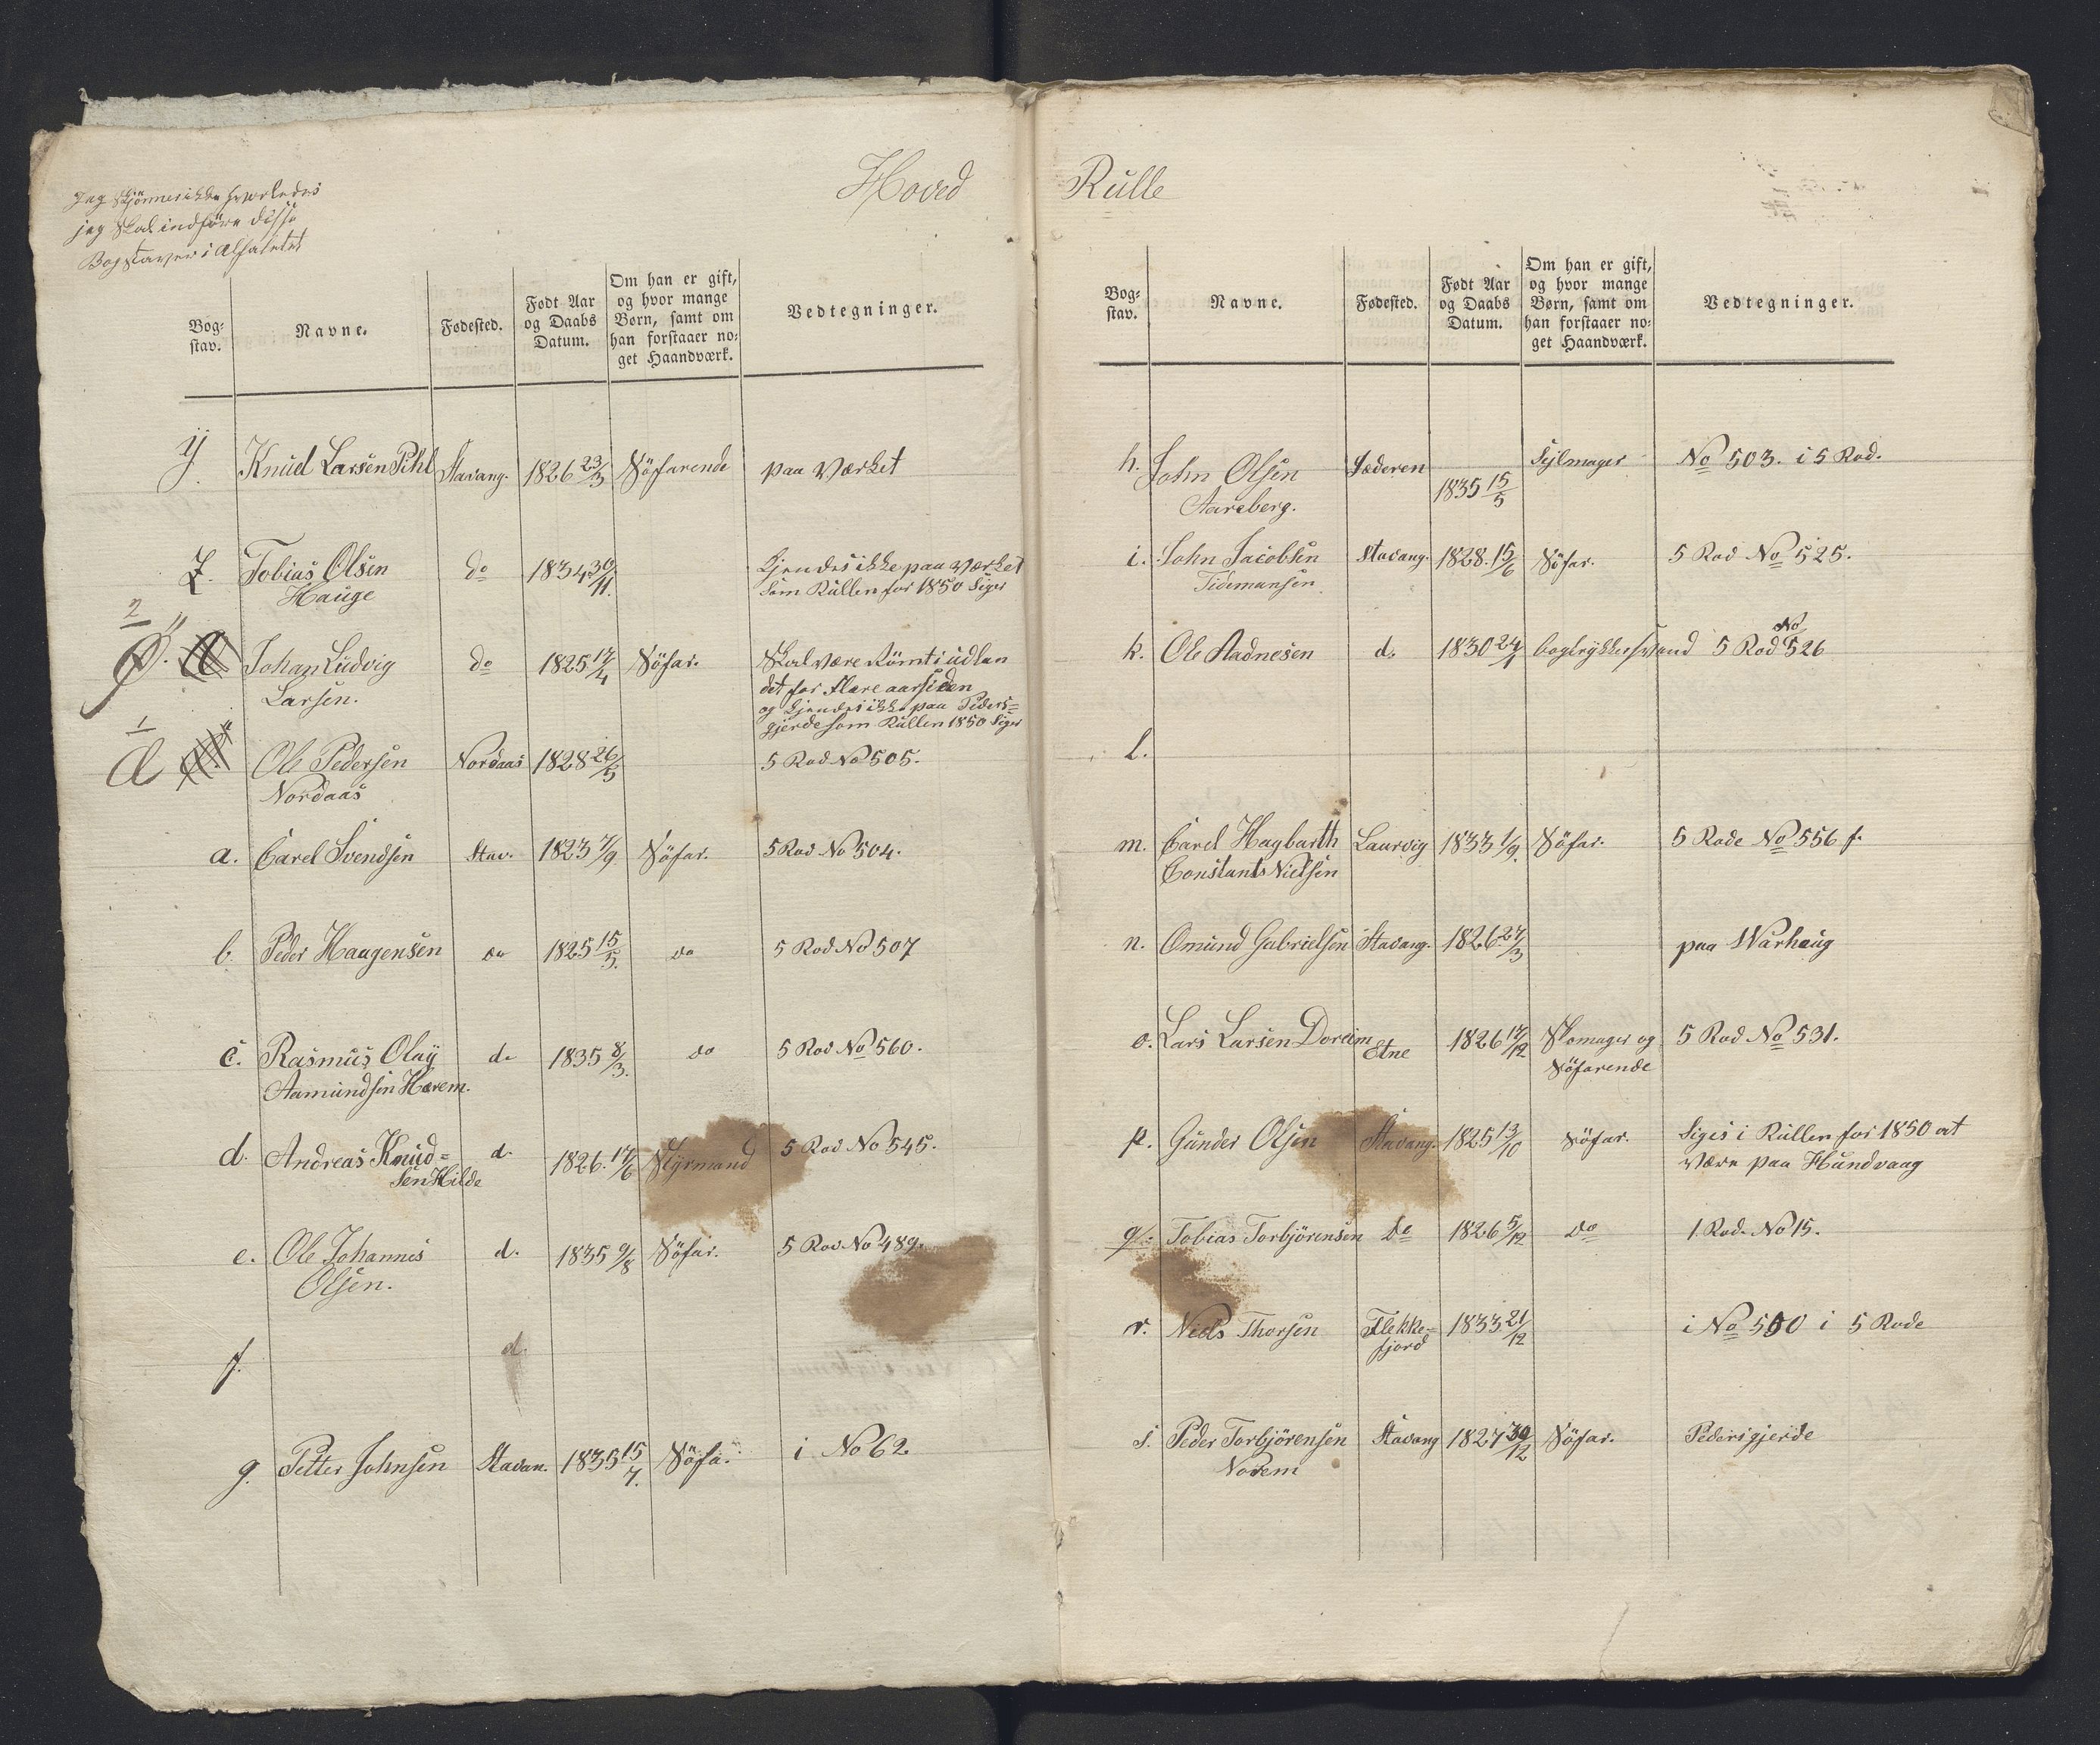 Jeg skjönner ikke hvorledes
jeg skal indföre disse
Bogstaver i Alfabetet
Hoved
Bog-
stav.
Navne.
Fødested.
Født Aar
og Daabs
Datum.
Om han er gift,
og hvor mange
Børn, samt om
han forstaaer no-
get Haandværk.
Vedtegninger.
y. Knud Larsen Pihl Stavang. 1826 23/3 Söfarende paa Værket
Z. Tobias Olsen do 1834 30/11. Kjendes ikke paa Værket
Hauge som Rullen for 1850 siger
2
Ø. Johan Ludvig do 1825 17/4 Söfar. Skal være römt i udlan
Larsen. det for flere aar siden
og kjendes ikke paa Peders-
gjerde som Rullen 1850 siger
1
Ole Pedersen Nordaas 1828 26/5 5 Rod No 505.
Nordaas
a. Carel Svendsen Stav. 1823 7/9 Söfar. 5 Rod No 504.
b. Peder Haagensen do 1825 15/5. do 5 Rod No 507
c. Rasmus Olay do 1835 8/3. do 5 Rod No 560.
Aamundsen Harem.
d. Andreas Knud= d. 1826. 17/6 Styrmand 5 Rod No 545.
sen Hilde
e. Ole Johannes d. 1835 9/8 Söfar. 5 Rod No 489.
Olsen.
f. d.
g. Petter Johnsen Stavan. 1835 15/7. Söfa. i No 62.
Rulle
Bog-
stav.
Navne.
Fødested.
Født Aar
og Daabs
Datum.
Om han er gift,
og hvor mange
Børn, samt om
han forstaaer no-
get Haandværk.
Vedtegninger.
h. John Olsen Jæderen 1835 15/5 Sejlmager No 503. i 5 Rod.
Aareberg.
i. John Jacobsen Stavang. 1828. 15/6 Söfar. 5 Rod No 525.
Tidemansen
k. Ole Aadnesen do 1830 24/1 bogtrykkersvend 5 Rod No 526
l.
m. Carel Hagbarth Laurvig 1833 1/9. Söfar. 5 Rode No 556 f.
Constants Nielsen
n. Omund Gabrielsen Stavang. 1826 27/3 paa Warhaug
o. Lars Larsen Doreim Etne 1826 17/12 Skomager og 5 Rod No 531.
Söfarende
p. Gunder Olsen Stavang. 1825 13/10 Söfar. Siges i Rullen for 1850 at
være paa Hundvaag
q. Tobias Torbjörensen do 1826 5/12 do 1 Rod. No 15.
r. Niels Thorsen Flekke= 1833 21/12 i No 500 i 5 Rode
fjord
s. Peder Torbjörensen Stavang 1827 30/12 Söfar. Pedersgjerde
Norem